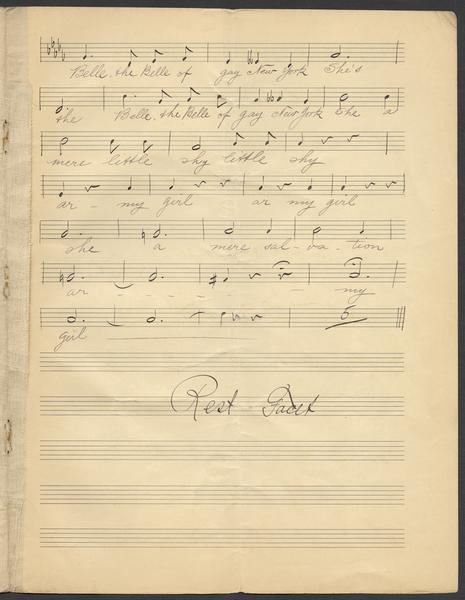 Belle. the Belle of gay New York She's
the Belle. the Belle of gay New York She a
mere little shy little shy
ar - my girl ar my girl
she a mere sal - va - tion
ar - - - - - - my
girl
5
Rest